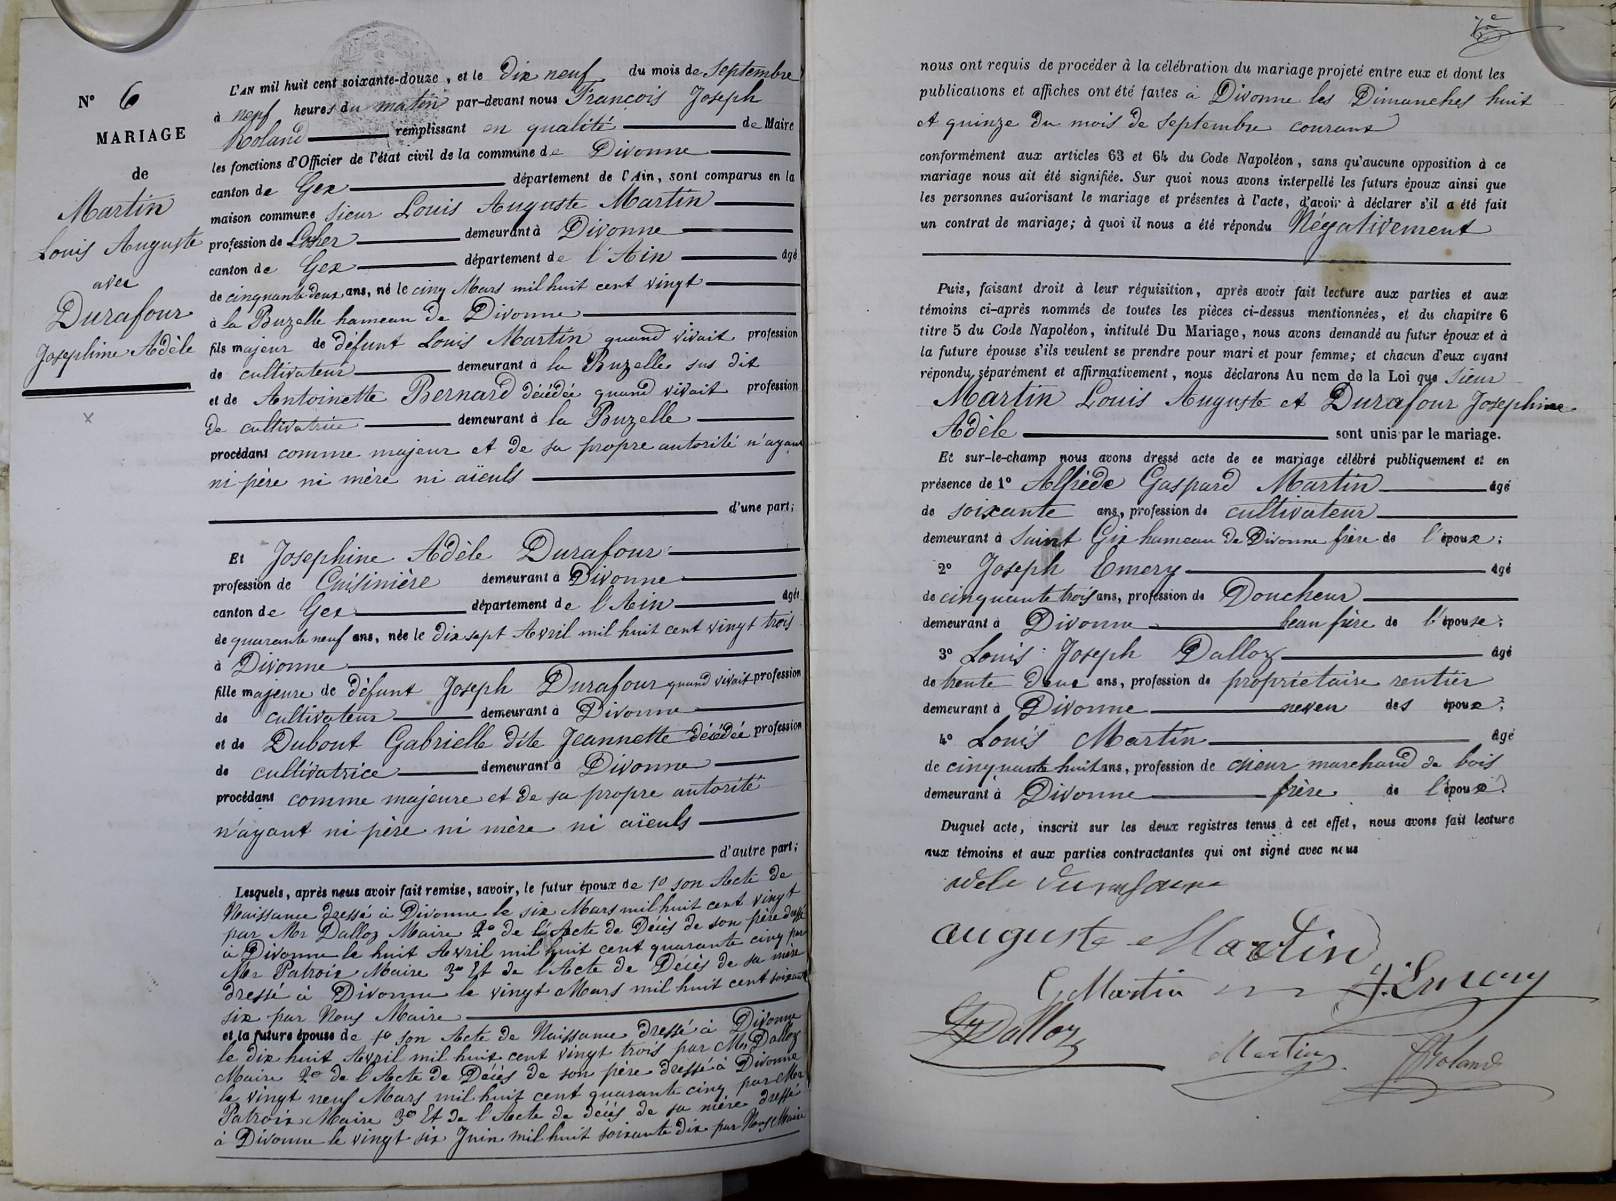 N° 6
MARIAGE
de
Martin
Louis Auguste
avec
Durafour
Josephine Adèle
L'AN mil huit cent soixante-douze, et le dix neuf du mois de Septembre
à neuf heures du matin par-devant nous Francois Joseph
Roland remplissant en qualité de Maire
les fonctions d'Officier de l'état civil de la commune de Divonne
canton de Gex département de l'Ain, sont comparus en la
maison commune Sieur Louis Auguste Martin
profession de demeurant à Divonne
canton de Gex département de l'Ain âgé
de cinquante deux ans, né le cinq Mars mil huit cent vingt
à la Buzelle hameau de Divonne
fils majeur de défunt Louis Martin quand vivait profession
de cultivateur demeurant à la Buzelle sus dit
et de Antoinette Bernard décédée quand vivait profession
de cultivatrice demeurant à la Buzelle
procédant comme majeur et de sa propre autorité n'ayant
ni père ni mère ni aïeuls
d'une part;
Et Josephine Adèle Durafour
profession de Cuisinière demeurant à Divonne
canton de Gex département de l'Ain âgée
de quarante neuf ans, née le dix sept Avril mil huit cent vingt trois
à Divonne
fille majeure de défunt Joseph Durafour quand vivait profession
de cultivateur demeurant à Divonne
et de Dubout Gabrielle dite Jeannette décédée profession
de cultivatrice demeurant à Divonne
procédant comme majeure et de sa propre autorité
n'ayant ni père ni mère ni aïeuls
d'autre part;
Lesquels, après nous avoir fait remise, savoir, le futur époux de 1° son Acte de
Naissance dressé à Divonne le six Mars mil huit cent vingt
par Mr Dalloz Maire 2° de l'Acte de Décès de son père dressé
à Divonne le huit Avril mil huit cent quarante cinq par
Mr Patroix Maire 3° Et de l'Acte de Décès de sa mère
dressé à Divonne le vingt Mars mil huit cent soixante
six par Nous Maire
et la future épouse de 1° son Acte de Naissance dressé à Divonne
le dix huit Avril mil huit cent vingt trois par Mr Dalloz
Maire 2° de l'Acte de Décès de son père dressé à Divonne
le vingt neuf Mars mil huit cent quarante cinq par Mr
Patroix Maire 3° Et de l'Acte de décès de sa mère dressé
à Divonne le vingt six Juin mil huit soixante dix par Nous Maire
nous ont requis de procéder à la célébration du mariage projeté entre eux et dont les
publications et affiches ont été faites à Divonne les Dimanches huit
et quinze du mois de Septembre courant
conformément aux articles 63 et 64 du Code Napoléon, sans qu'aucune opposition à ce
mariage nous ait été signifiée. Sur quoi nous avons interpellé les futurs époux ainsi que
les personnes autorisant le mariage et présentes à l'acte, d'avoir à déclarer s'il a été fait
un contrat de mariage; à quoi il nous a été répondu Négativement
Puis, faisant droit à leur réquisition, après avoir fait lecture aux parties et aux
témoins ci-après nommés de toutes les pièces ci-dessus mentionnées, et du chapitre 6
titre 5 du Code Napoléon, intitulé Du Mariage, nous avons demandé au futur époux et à
la future épouse s'ils veulent se prendre pour mari et pour femme; et chacun d'eux ayant
répondu séparément et affirmativement, nous déclarons Au nom de la Loi que Sieur
Martin Louis Auguste et Durafour Josephine
Adèle sont unis par le mariage.
Et sur-le-champ nous avons dressé acte de ce mariage célébré publiquement et en
présence de 1° Alfrède Gaspard Martin âgé
de soixante ans, profession de cultivateur
demeurant à Saint Gix hameau de Divonne frère de l'époux;
2° Joseph Emery âgé
de cinquante trois ans, profession de Doucheur
demeurant à Divonne beau frère de l'épouse;
3° Louis Joseph Dalloz âgé
de trente deux ans, profession de propriétaire rentier
demeurant à Divonne neveu des époux;
4° Louis Martin âgé
de cinquante huit ans, profession de scieur marchand de bois
demeurant à Divonne frère de l'époux.
Duquel acte, inscrit sur les deux registres tenus à cet effet, nous avons fait lecture
aux témoins et aux parties contractantes qui ont signé avec nous
adele durafour
auguste Martin
G Martin J. Emery
Dalloz Martin Roland